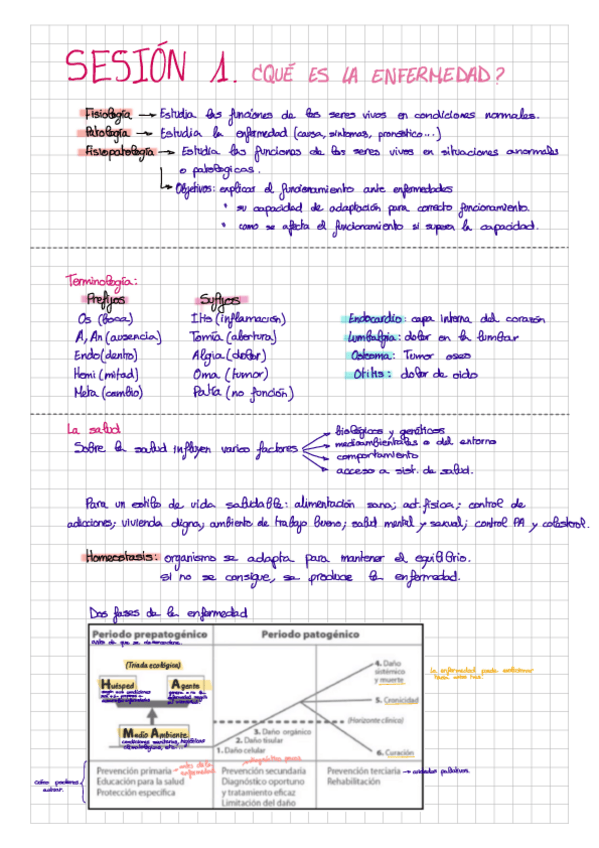 SESIÓN 1. ¿QUÉ ES LA ENFERMEDAD?
Fisiología → Estudia las funciones de los seres vivos en condiciones normales.
Patología → Estudia la enfermedad (causa, síntomas, pronóstico...)
Fisiopatología → Estudia las funciones de los seres vivos en situaciones anormales
o patológicas.
Objetivos: explicar el funcionamiento ante enfermedades
• su capacidad de adaptación para correcto funcionamiento.
• como se afecta el funcionamiento si supera la capacidad.
Terminología:
Prefijos Sufijos
Os (boca) Itis (inflamación) Endocardio: capa interna del corazón
A, An (ausencia) Tomía (abertura) Lumbalgia: dolor en la lumbar
Endo (dentro) Algia (dolor) Osteoma: Tumor oseo
Hemi (mitad) Oma (tumor) Otitis: dolor de oido
Meta (cambio) Patía (no función)
La salud
Sobre la salud influyen varios factores
biológicos y genéticos
medioambientales o del entorno
comportamiento
acceso a sist. de salud.
Para un estilo de vida saludable: alimentación sana; act. física; control de
adicciones; vivienda digna; ambiente de trabajo bueno; salud mental y sexual; control PA y colesterol.
Homeostasis: organismo se adapta para mantener el equilibrio.
si no se consigue, se produce la enfermedad.
Dos fases de la enfermedad
Periodo prepatogénico Periodo patogénico
antes de que se
(Triada ecológica)
Huésped Agente
Medio Ambiente
4. Daño
sistémico
y muerte
la enfermedad puede evolucionar
5. Cronicidad
(Horizonte clínico)
3. Daño orgánico
2. Daño tisular
1. Daño celular
6. Curación
Prevención primaria → antes de la
enfermedad
Educación para la salud
Protección específica
Prevención secundaria
Diagnóstico oportuno
y tratamiento eficaz
Limitación del daño
Prevención terciaria → cuidados paliativos.
Rehabilitación
cómo podemos
actuar.